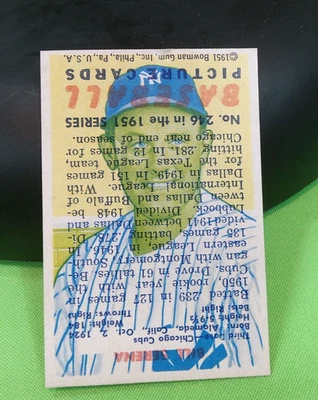 BILL SERENA
Third Base—Chicago Cubs
Born: Alameda, Calif., Oct. 2, 1924
Height: 5-9½ Weight: 184
Bats: Right Throws: Right
Batted .239 in 127 games in
1950, his rookie year with
Cubs. Drove in 61 tallies. Be-
gan with Montgomery, South-
eastern League, in 1946. In
135 games, batting Di-
vided 1947
Lubbock. Divided 1948
Dallas and Buffalo of
International League. With
Dallas in 1949. In 151 games
for the Texas League team,
hitting .281. In 12 games for
Chicago near end of season.
No. 246 in the 1951 SERIES
BASEBALL
PICTURE CARDS
©1951 Bowman Gum, Inc., Phila., Pa., U.S.A.